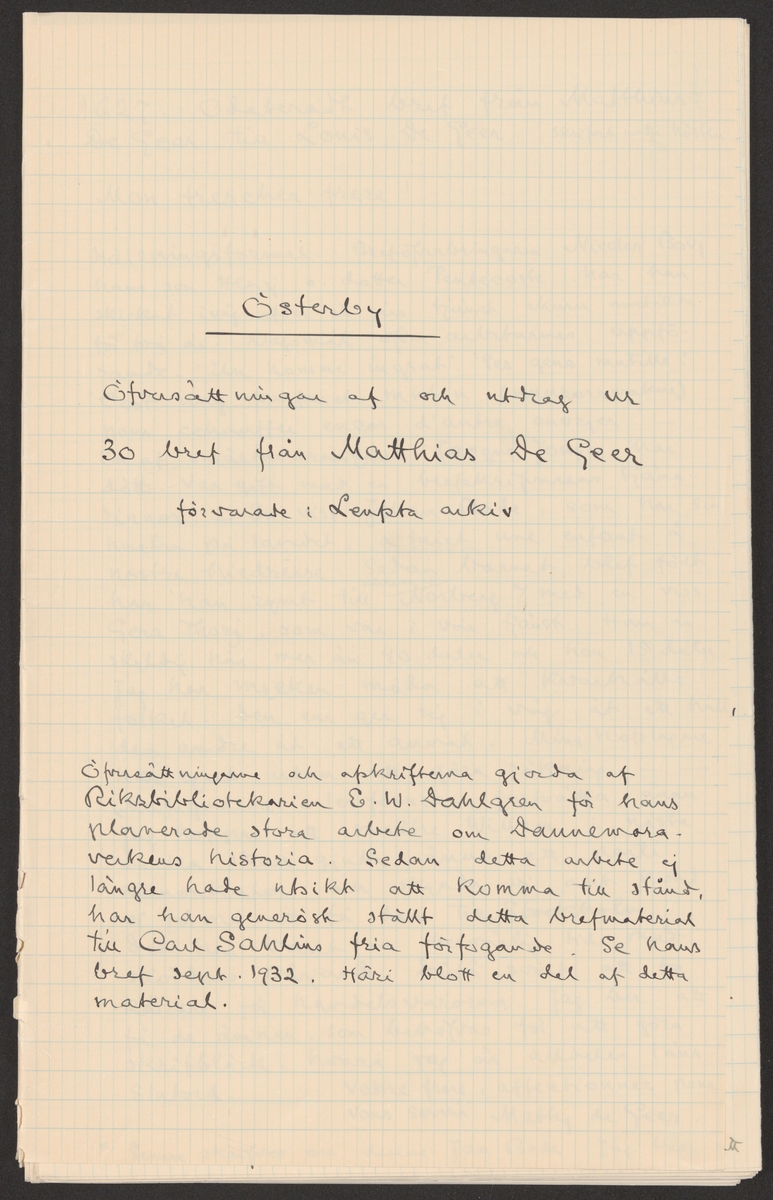 Österby
Öfversättningar af och utdrag ur
30 bref från Matthias De Geer
förvarade i Leufsta arkiv
Öfversättningarne och afskrifterna gjorda af
Riksbibliotekarien E. W. Dahlgren för hans
planerade stora arbete om Dannemora-
verkens historia. Sedan detta arbete ej
längre hade utsikt att komma till stånd,
har han generöst ställt detta brefmaterial
till Carl Sahlins fria förfogande. Se hans
bref sept. 1932. Häri blott en del af detta
material.